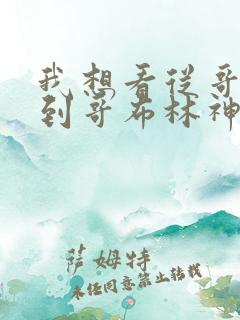 我想看从哥
到哥布林神
萨姆特
未经同意禁止转载